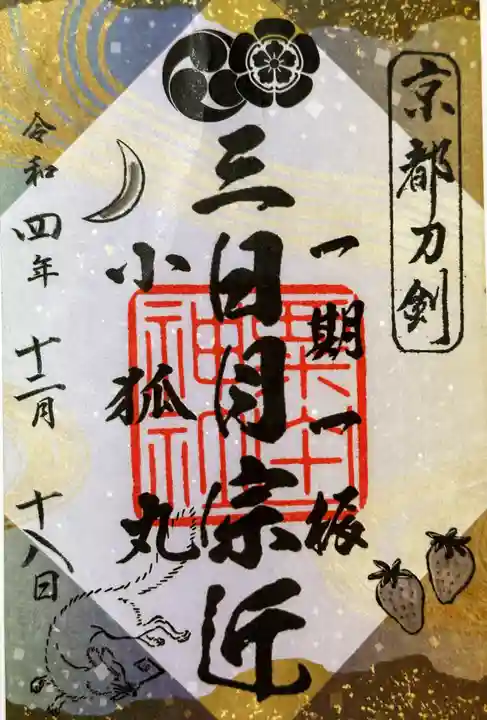 京都刀剣
一期一振
三日月宗近
小狐丸
令和四年 十二月 十八日
粟田
神社